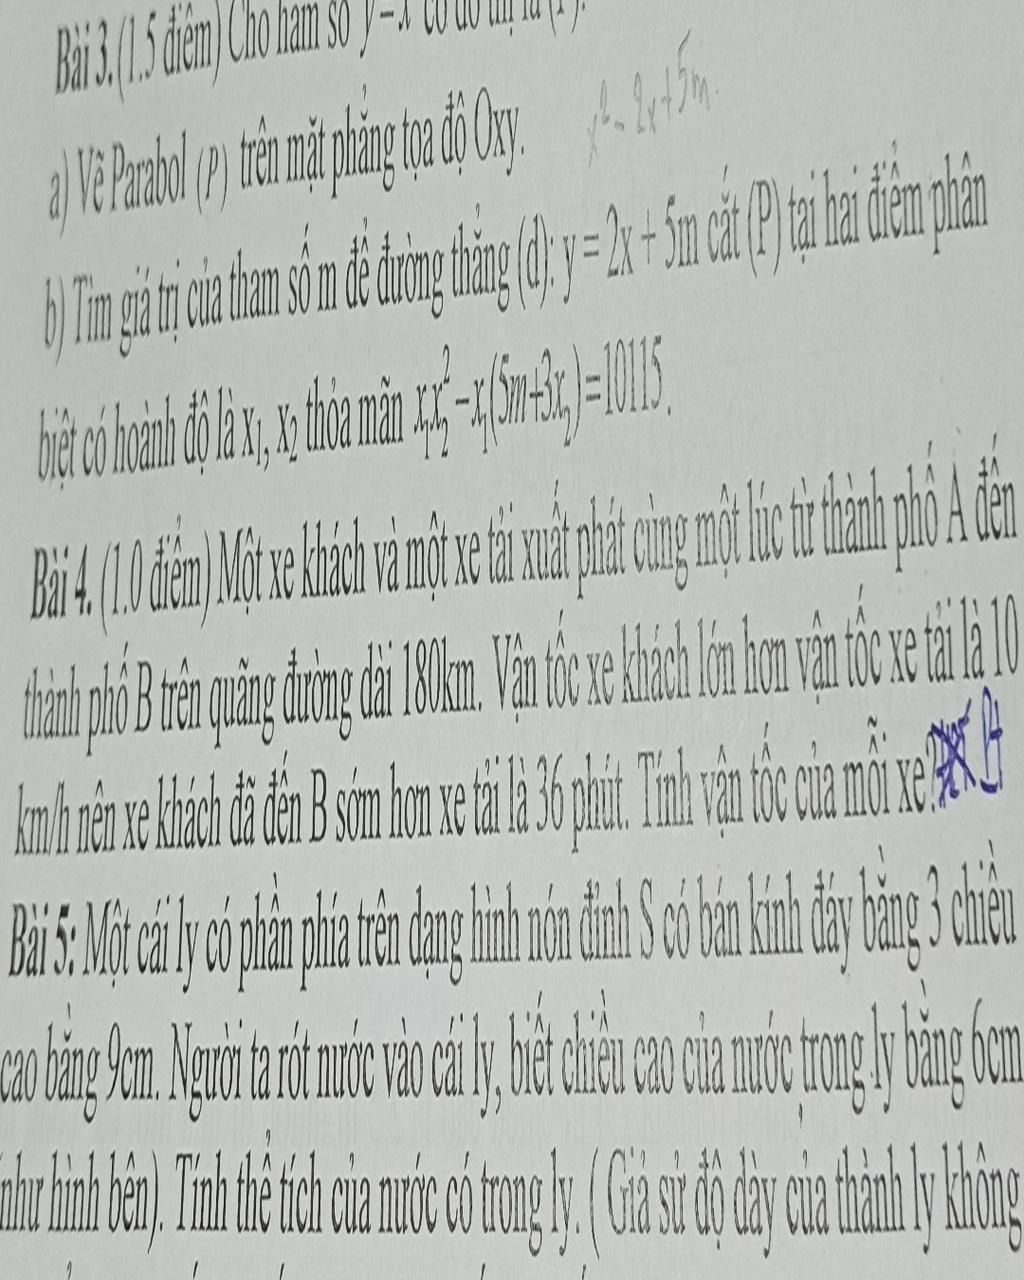 Bài 3. (1.5 điểm) Cho hàm số y = x có đồ thị là (P).
x² - 2x + 5m.
a) Vẽ Parabol (P) trên mặt phẳng tọa độ Oxy.
b) Tìm giá trị của tham số m để đường thẳng (d): y = 2x + 5m cắt (P) tại hai điểm phân
biệt có hoành độ là x₁, x₂ thỏa mãn x₁x₂² – x₁(5m+3x₂) = 10115.
Bài 4. (1.0 điểm) Một xe khách và một xe tải xuất phát cùng một lúc từ thành phố A đến
thành phố B trên quãng đường dài 180km. Vận tốc xe khách lớn hơn vận tốc xe tải là 10
km/h nên xe khách đã đến B sớm hơn xe tải là 36 phút. Tính vận tốc của mỗi xe?
Bài 5: Một cái ly có phần phía trên dạng hình nón đỉnh S có bán kính đáy bằng 3 chiều
cao bằng 9cm. Người ta rót nước vào cái ly, biết chiều cao của nước trong ly bằng 6cm
như hình bên). Tính thể tích của nước có trong ly. ( Giả sử độ dày của thành ly không